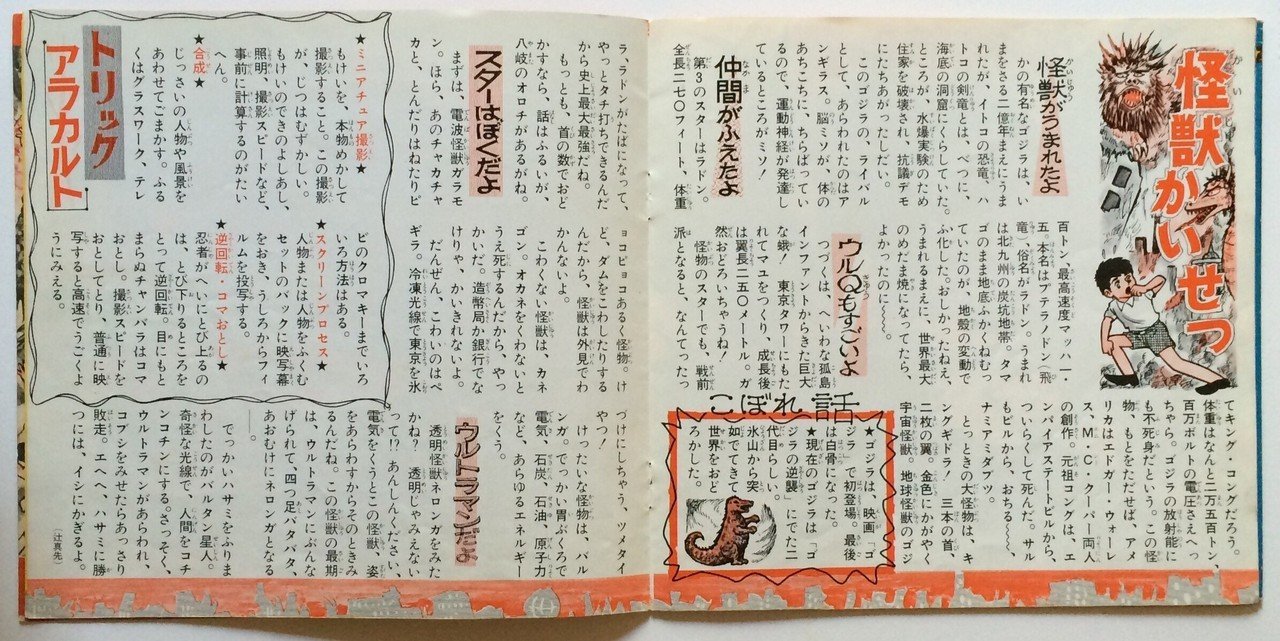 怪獣かいせつ
怪獣がうまれたよ
かの有名なゴジラは、い
まをさる二億年まえにうま
れたが、イトコの恐竜、ハ
トコの剣竜とは、べつに、
海底の洞窟にくらしていた。
ところが、水爆実験のため
住家を破壊され、抗議デモ
にたちあがったしだい。
このゴジラの、ライバル
として、あらわれたのはア
ンギラス。脳ミソが、体の
あちこちに、ちらばってい
るので、運動神経が発達し
ているところがミソ!
仲間がふえたよ
第3のスターはラドン。
全長二七〇フィート、体重
百トン、最高速度マッハ一・
五、本名はプテラノドン(飛
竜)、俗名がラドン。うまれ
は北九州の炭坑地帯。タマ
ゴのまま地底ふかくねむっ
ていたのが、地殻の変動で
ふ化した。おしかったねえ、
うまれるまえに、世界最大
のめだま焼になってたら、
よかったのに〜〜。
ウルQもすごいよ
つづくは、へいわな孤島
インファントからきた巨大
な蛾!東京タワーにもた
れてマユをつくり、成長後
は翼長二五〇メートル。ガ
然おどろいちゃうね!
怪物のスターでも、戦前
派となると、なんてったっ
てキング・コングだろう。
体重はなんと二万五百トン、
百万ボルトの電圧さえへっ
ちゃら。ゴジラの放射能に
も不死身だという。この怪
物、もとをただせば、アメ
リカはエドガー・ウォーレ
ス、M・C・クーパー両人
の創作。元祖コングは、エ
ンパイアステートビルから、
ついらくして死んだ。サル
もビルから、おちる〜〜、
ナミアミダブツ。
とっときの大怪物は、キ
ングギドラ! 三本の首、
二枚の翼。金色にかがやく
宇宙怪獣。地球怪獣のゴジ
こぼれ話
★ゴジラは、映画「ゴ
ジラ」で初登場。最後
は白骨になった。
★現在のゴジラは「ゴ
ジラの逆襲」にでた二
代目らしい。
氷山から突
如でてきて
世界をおど
ろかした。
ラ、ラドンがたばになって、
やっとタチ打ちできるんだ
から史上最大最強だな。
もっとも、首の数でおど
かすなら、話はふるいが、
八岐のオロチがあるがね。
スターはぼくだよ
まずは、電波怪獣ガラモ
ン。ほら、あのチャカチャ
カと、とんだりはねたりピ
ョコピョコあるく怪物。け
ど、ダムをこわしたりする
んだから、怪獣は外見でわ
かんないよ。
こわくない怪獣は、カネ
ゴン。オカネをくわないと
うえ死するんだから、やっ
かいだ。造幣局か銀行でな
けりゃ、かいきれないよ。
だんぜん、こわいのはペ
ギラ。冷凍光線で東京を氷
づけにしちゃう、ツメタイ
やつ!
けったいな怪物は、バル
ンガ。でっかい胃ぶくろで
電気、石炭、石油、原子力
など、あらゆるエネルギー
をくう。
ウルトラマンだよ
透明怪獣ネロンガをみた
かね? 透明じゃみえない
って!? あんしんください、
電気をくうとこの怪獣、姿
をあらわすからそのときみ
るんだよね。この怪獣の最期
は、ウルトラマンにぶんな
げられて、四つ足バタバタ、
あおむけにネロンガとなる
――。
でっかいハサミをふりま
わしたのがバルタン星人。
奇怪な光線で、人間をコチ
ンコチンにする。さっそく、
ウルトラマンがあらわれ、
コブシをみせたらあっさり
敗走。エヘヘ、ハサミに勝
つには、イシにかぎるよ。
(辻真先)
トリック
アラカルト
★ミニアチュア撮影★
もけいを、本物めかして
撮影すること。この撮影
が、じつはむずかしい。
もけいのできのよしあし、
照明、撮影スピードなど、
事前に計算するのがたい
へん。
★合成★
じっさいの人物や風景を
あわせてごまかす。ふる
くはグラスワーク、テレ
ビのクロマキーまでいろ
いろ方法はある。
★スクリーンプロセス★
人物または人物をふくむ
セットのバックに映写幕
をおき、うしろからフィ
ルムを投写する。
★逆回転・コマおとし★
忍者がへいにとび上るの
は、とび下りるところを
とって逆回転。目にもと
まらぬチャンバラはコマ
おとし。撮影スピードを
おとしてとり、普通に映
写すると高速でうごくよ
うにみえる。